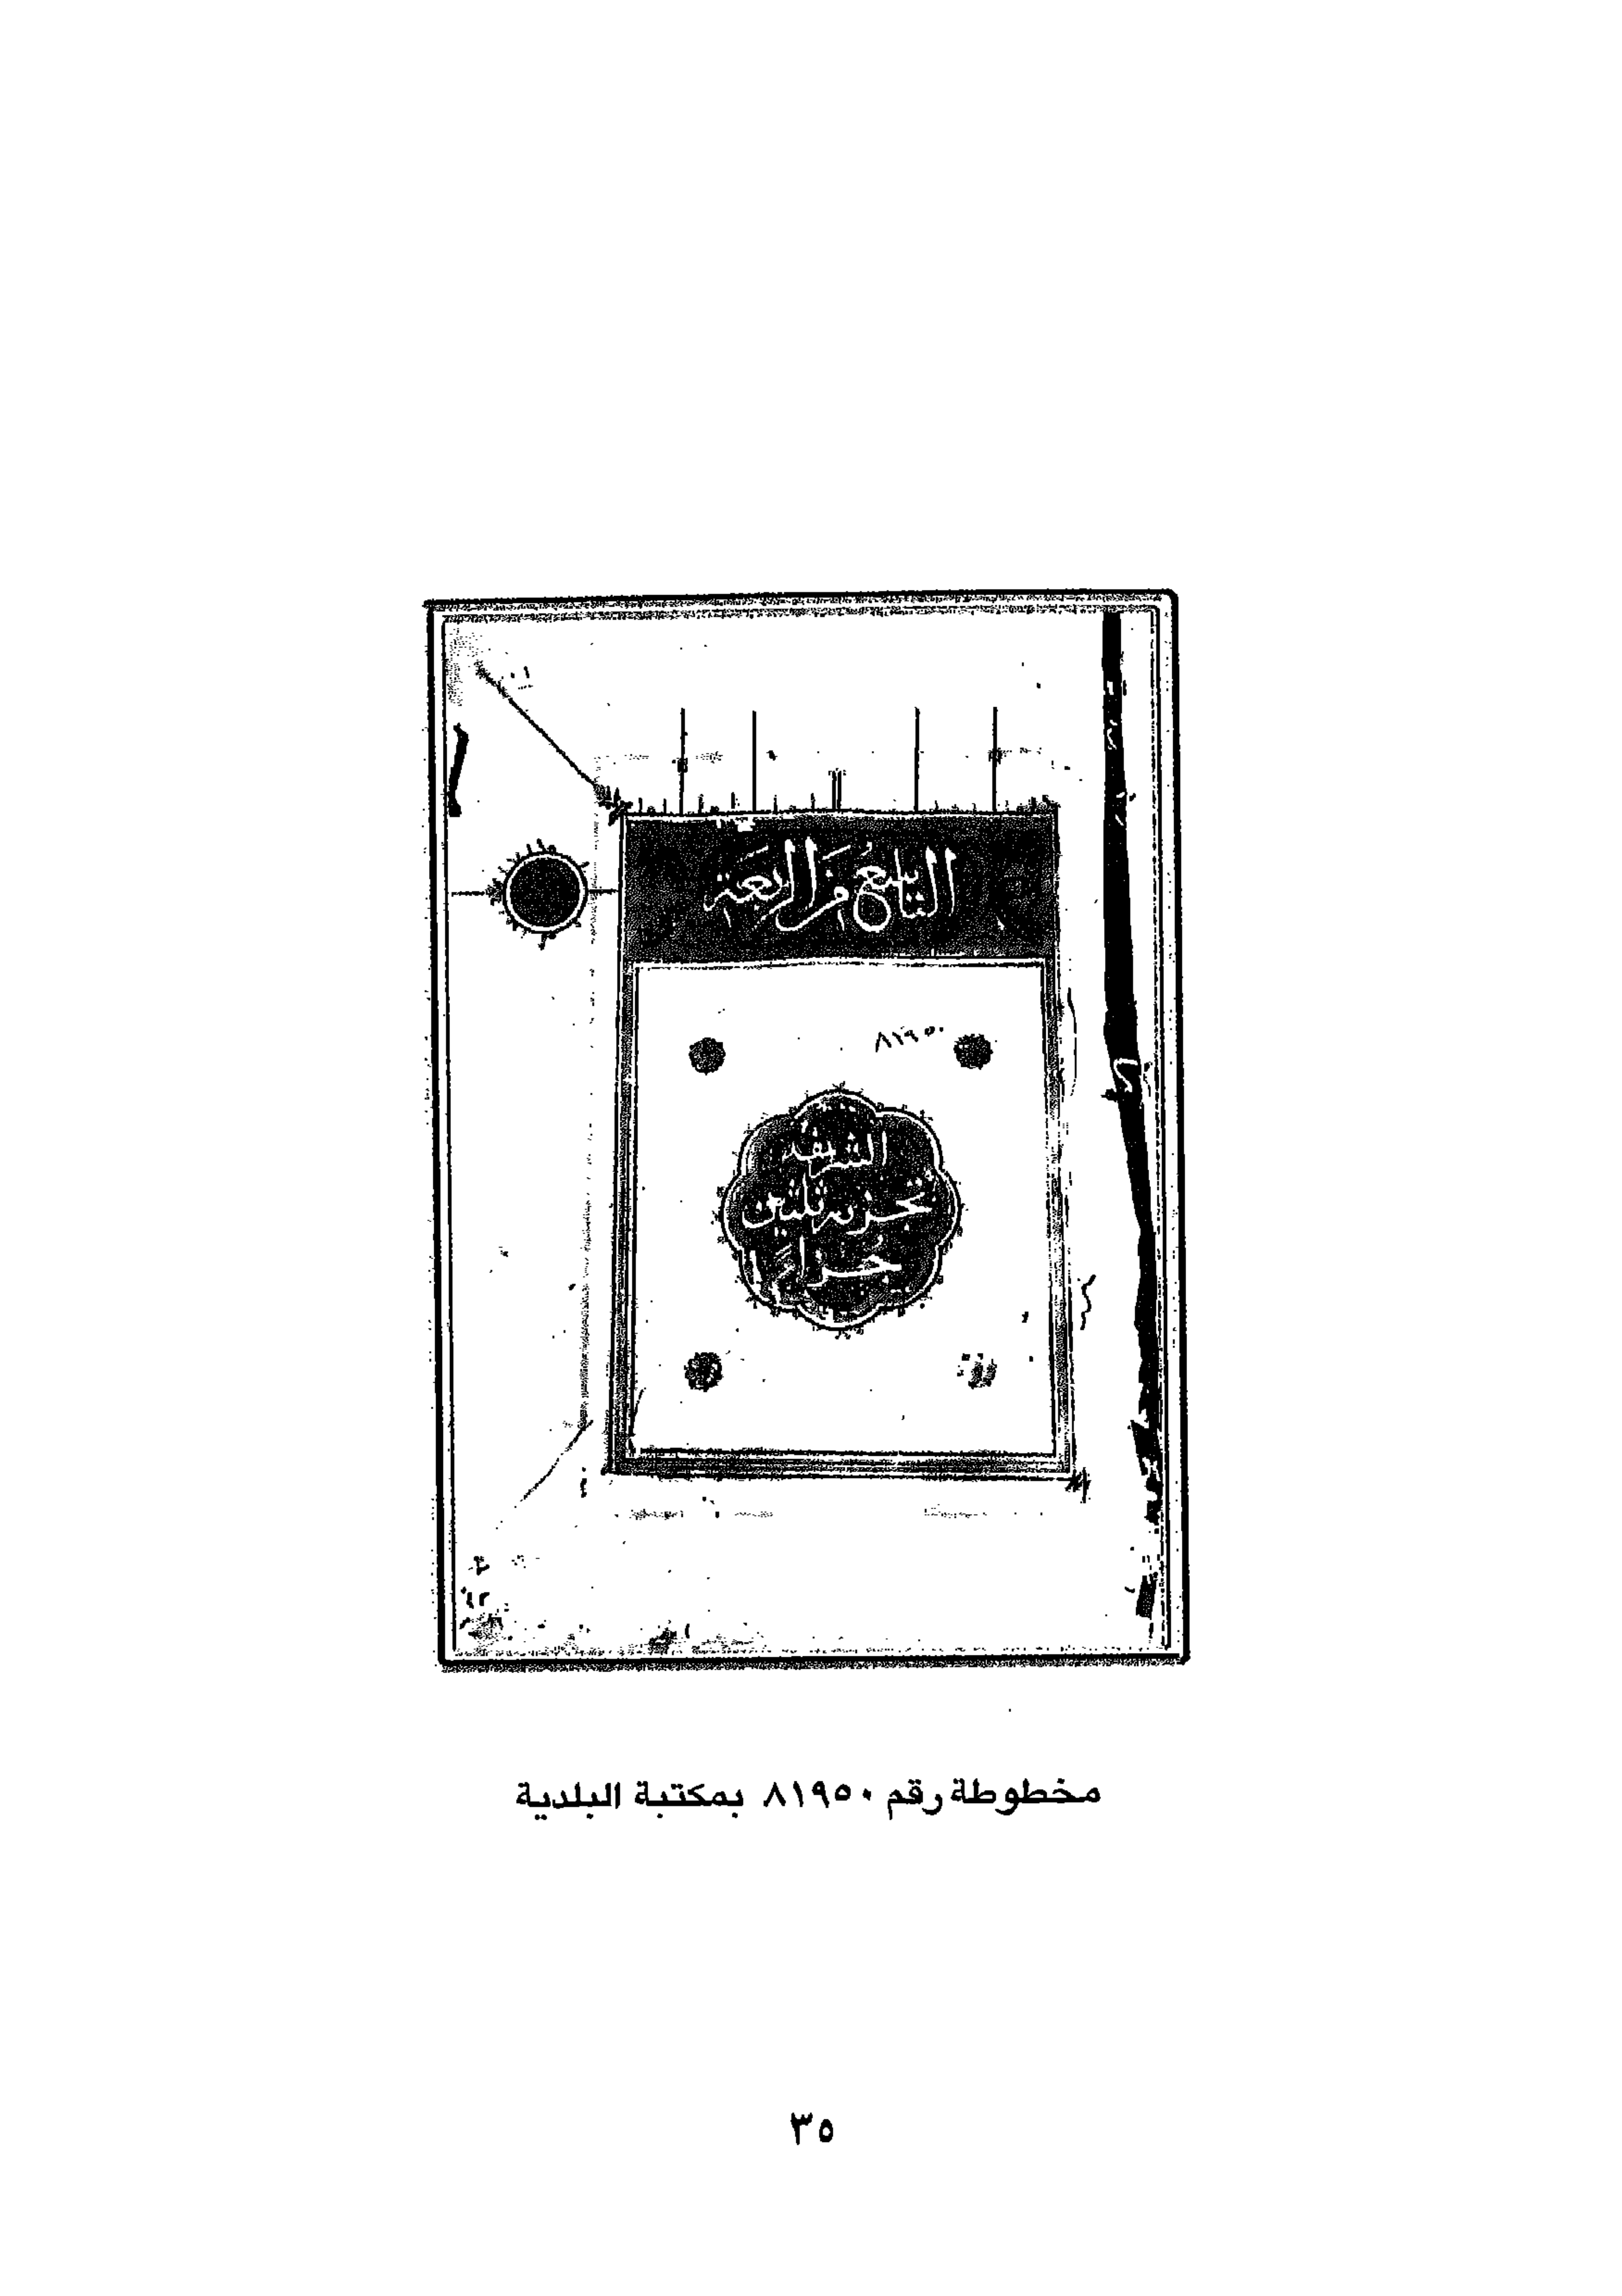 السابع من الربعة
٨١٩٥٠
الشريفة
تجزئه ثلثين
جزءا
مخطوطة رقم ٨١٩٥٠ بمكتبة البلدية
٣٥